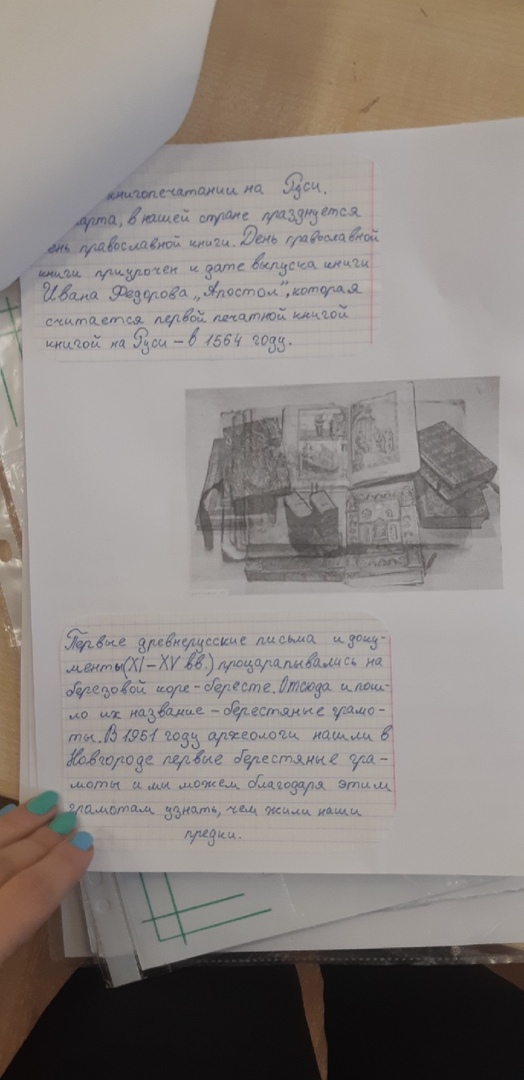 книгопечатании на Руси.
марта, в нашей стране празднуется
день православной книги. День православной
книги приурочен к дате выпуска книги
Ивана Федорова „Апостол", которая
считается первой печатной книгой
книгой на Руси – в 1564 году.
Первые древнерусские письма и доку-
менты (XI – XV вв.) процарапывались на
березовой коре - бересте. Отсюда и пош-
ло их название – берестяные грамо-
ты. В 1951 году археологи нашли в
Новгороде первые берестяные гра-
моты и мы можем благодаря этим
грамотам узнать, чем жили наши
предки.